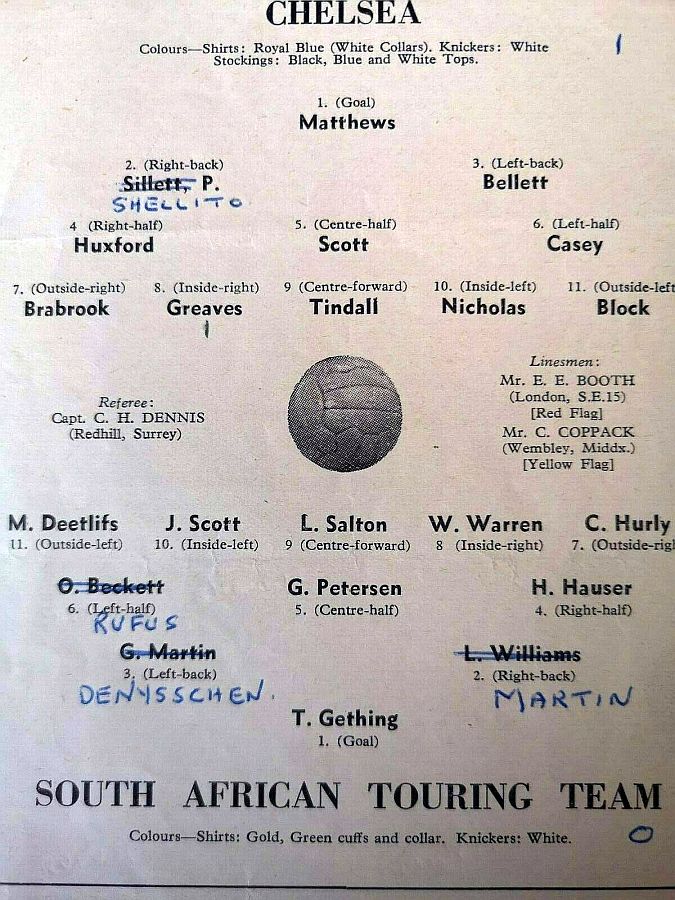 CHELSEA
Colours—Shirts: Royal Blue (White Collars). Knickers: White
Stockings: Black, Blue and White Tops.
1
1. (Goal)
Matthews
2. (Right-back) 3. (Left-back)
Sillett, P. Bellett
SHELLITO
4 (Right-half) 5. (Centre-half) 6. (Left-half)
Huxford Scott Casey
7. (Outside-right) 8. (Inside-right) 9 (Centre-forward) 10. (Inside-left) 11. (Outside-left
Brabrook Greaves Tindall Nicholas Block
1
Linesmen:
Mr. E. E. BOOTH
(London, S.E.15)
[Red Flag]
Mr. C. COPPACK
(Wembley, Middx.)
[Yellow Flag]
Referee:
Capt. C. H. DENNIS
(Redhill, Surrey)
M. Deetlifs J. Scott L. Salton W. Warren C. Hurly
11. (Outside-left) 10. (Inside-left) 9 (Centre-forward) 8 (Inside-right) 7. (Outside-righ
O. Beckett G. Petersen H. Hauser
6. (Left-half) 5. (Centre-half) 4. (Right-half)
RUFUS
G. Martin L. Williams
3. (Left-back) 2. (Right-back)
DENYSSCHEN. MARTIN
T. Gething
1. (Goal)
SOUTH AFRICAN TOURING TEAM
Colours—Shirts: Gold, Green cuffs and collar. Knickers: White.
0